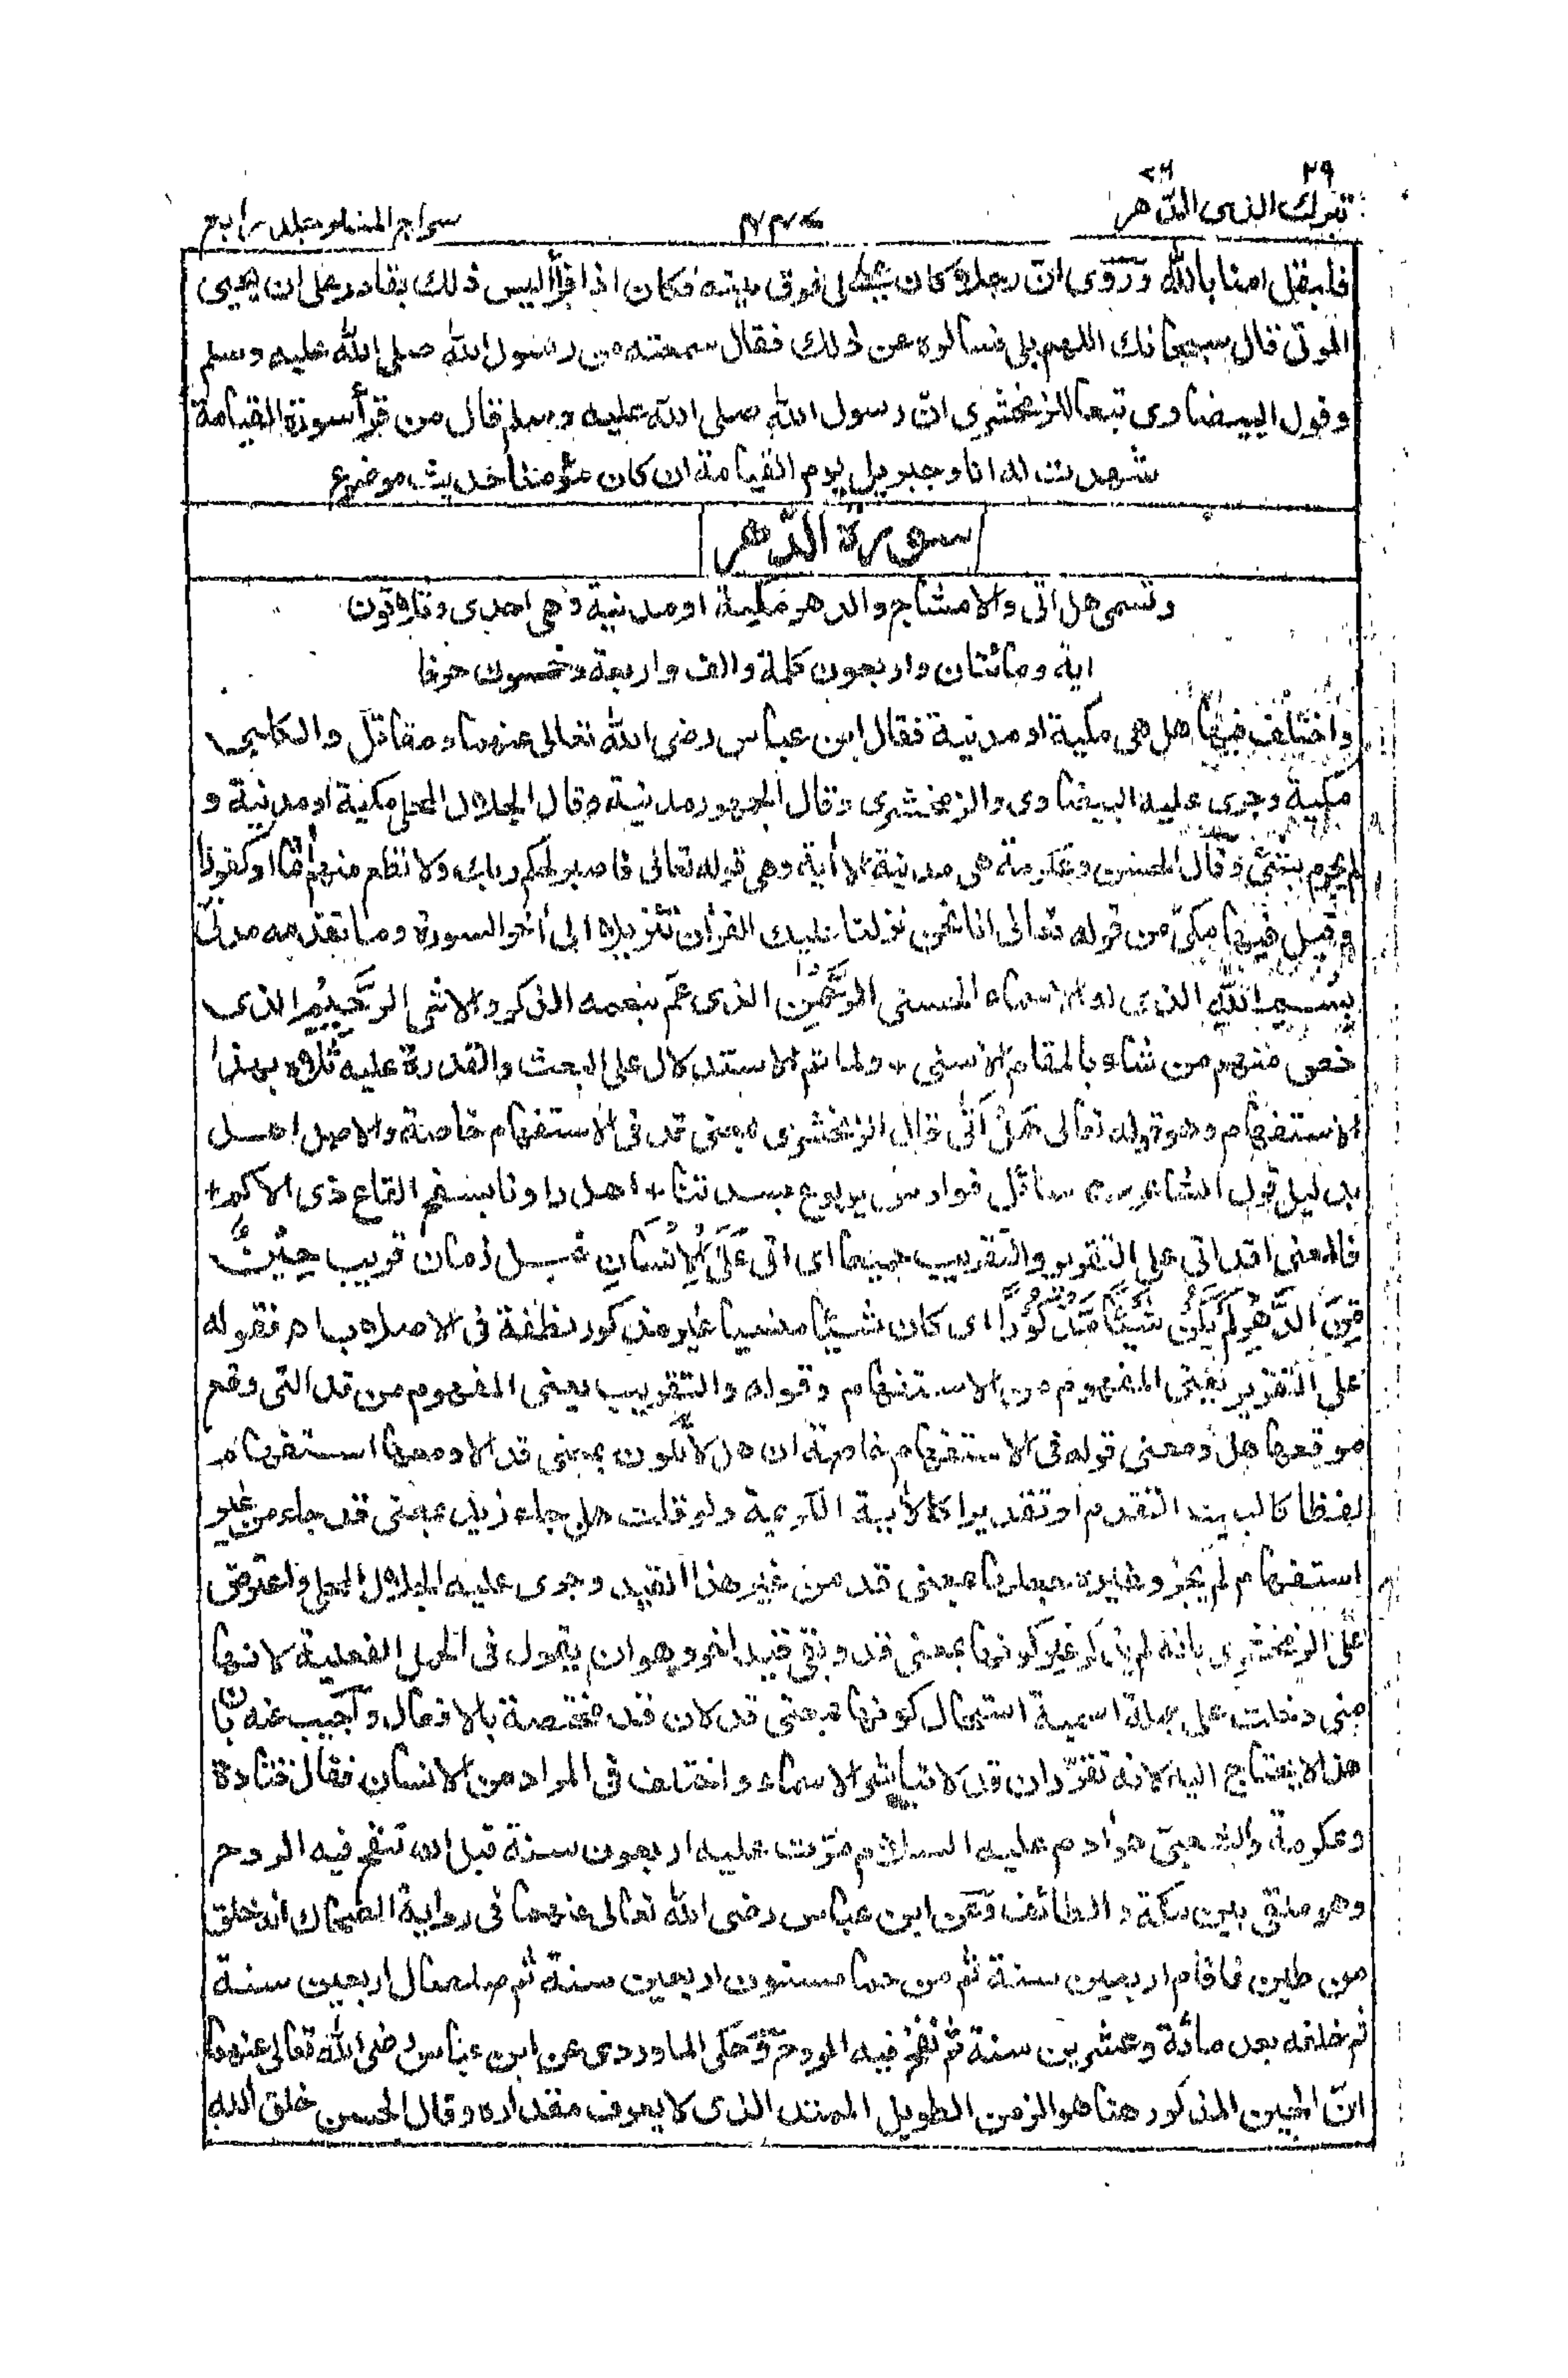 ٢٩ ٧٦
تبرك الذى الدّهر
سراج المنير جلد رابع
فليقل امنا بالله وروى ان رجلا كان يصلى فوق بيته فكان اذا قرأ أليس ذلك بقادر على ان يحيى
الموتى قال سبحانك اللهم بلى فسألوه عن ذلك فقال سمعته من رسول الله صلى الله عليه وسلم
وقول البيضاوى تبعا للزمخشرى ان رسول الله صلى الله عليه وسلم قال من قرأ سورة القيامة
شهدت له انا وجبريل يوم القيامة ان كان مؤمنا حديث موضوع
سورة الدّهر
وتسمى هل اتى والامشاج والدهر مكية او مدنية وهى احدى وثلاثون
اية ومائتان واربعون كلمة والف واربعة وخمسون حرفا
واختلف فيها هل هى مكية او مدنية فقال ابن عباس رضى الله تعالى عنهما ومقاتل والكلبى
مكية وجرى عليه البيضاوى والزمخشرى وقال الجمهور مدنية وقال الجلال المحلى مكية او مدنية و
لم يجزم بشئ وقال الحسن وعكرمة هى مدنية الا أية وهى قوله تعالى فاصبر لحكم ربك ولا تطع منهم أثما او كفورا
وقيل فيها مكىّ من قوله تعالى انا نحن نزلنا عليك القرأن تنزيلا الى أخر السورة وما تقدمه مدنىّ
بسم الله الذى له الاسماء الحسنى الرحمن الذى عمّ بنعمه الذكر والانثى الرحيم الذى
خص منهم من شاء بالمقام الاسنى ولما تم الاستدلال على البعث والقدرة عليه تلاه بهذا
الاستفهام وهو قوله تعالى هل أتى قال الزمخشرى بمعنى قد فى الاستفهام خاصة والاصل اهل
بدليل قول الشاعر سائل فوارس يربوع بشدتنا اهل راونا بسفح القاع ذى الاكم
فالمعنى اقد اتى على التقرير والتقريب جميعا اى اتى على الانسان قبل زمان قريب حين
من الدهر لم يكن شيئا مذكورا اى كان شيئا منسيا غير مذكور نطفة فى الاصلاب ام فقوله
على التقرير يعنى المفهوم من الاستفهام وقوله والتقريب يعنى المفهوم من قد التى وقع
موقعها هل ومعنى قوله فى الاستفهام خاصة ان هل لا تكون بمعنى قد الا ومعها استفهام
لفظا كالبيت المتقدم او تقديرا كالأية الكريمة ولو قلت هل جاء زيد بمعنى قد جاء من غير
استفهام لم يجز وغيره جعلها بمعنى قد من غير هذا القيد وجرى عليه الجلال المحلى واعترض
على الزمخشرى بانه لم يذكر غير كونها بمعنى قد وبقى قيد اخر وهو ان يقول فى الجمل الفعلية لانها
متى دخلت على جملة اسمية استحال كونها بمعنى قد لان قد مختصة بالافعال وأجيب عنه بان
هذا لا يحتاج اليه لانه تقرّر ان قد لا تباشر الاسماء واختلف فى المراد من الانسان فقال قتادة
وعكرمة والشعبىّ هو أدم عليه السلام مرّت عليه اربعون سنة قبل ان تنفخ فيه الروح
وهو ملقى بين مكة والطائف وعن ابن عباس رضى الله تعالى عنهما فى رواية الضحاك انه خلق
من طين فاقام اربعين سنة ثم من حما مسنون اربعين سنة ثم صلصال اربعين سنة
ثم خلقه بعد مائة وعشرين سنة ثم نفخ فيه الروح وحكى الماوردى عن ابن عباس رضى الله تعالى عنهما
انّ الحين المذكور هنا هو الزمن الطويل الممتد الذى لا يعرف مقداره وقال الحسن خلق الله